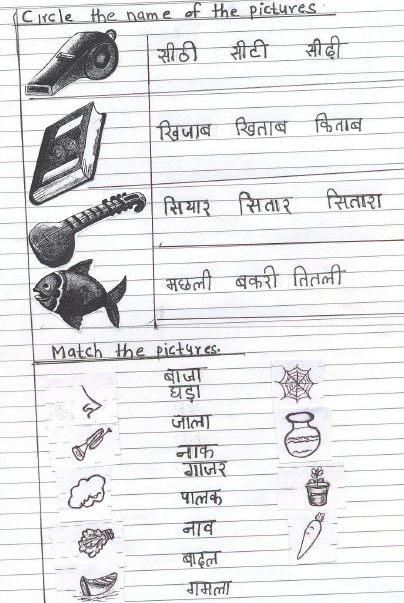 Circle the name of the pictures
सीठी सीटी सीढ़ी
खिजाब खिताब किताब
सियार सितार सितारा
मछली बकरी तितली
Match the pictures.
बाजा
घड़ा
जाला
नाक
गाजर
पालक
नाव
बादल
गमला